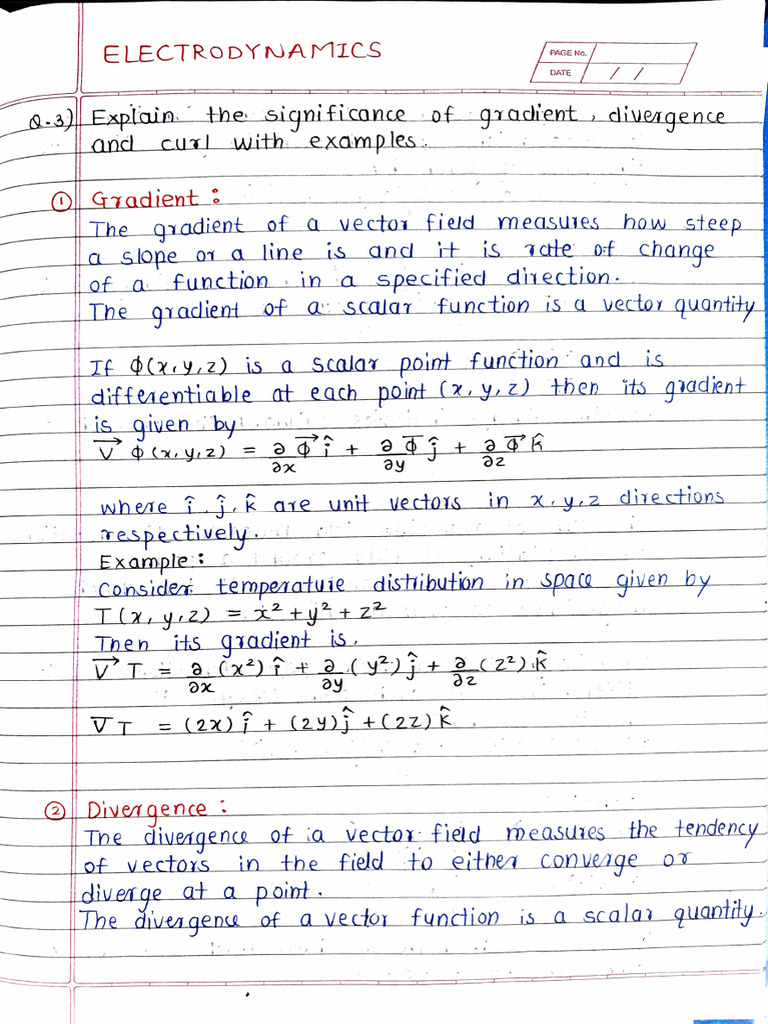 ELECTRODYNAMICS
PAGE No.
DATE / /
Q.3) Explain the significance of gradient, divergence
and curl with examples.
① Gradient :
The gradient of a vector field measures how steep
a slope or a line is and it is rate of change
of a function in a specified direction.
The gradient of a scalar function is a vector quantity
If Φ(x,y,z) is a scalar point function and is
differentiable at each point (x,y,z) then its gradient
is given by
∇⃗ Φ(x,y,z) = ∂Φ⃗/∂x î + ∂Φ⃗/∂y ĵ + ∂Φ⃗/∂z k̂
where î, ĵ, k̂ are unit vectors in x,y,z directions
respectively.
Example :
Consider temperature distribution in space given by
T(x,y,z) = x² + y² + z²
Then its gradient is,
∇⃗ T = ∂/∂x (x²) î + ∂/∂y (y²) ĵ + ∂/∂z (z²) k̂
∇T = (2x) î + (2y) ĵ + (2z) k̂
② Divergence :
The divergence of a vector field measures the tendency
of vectors in the field to either converge or
diverge at a point.
The divergence of a vector function is a scalar quantity.